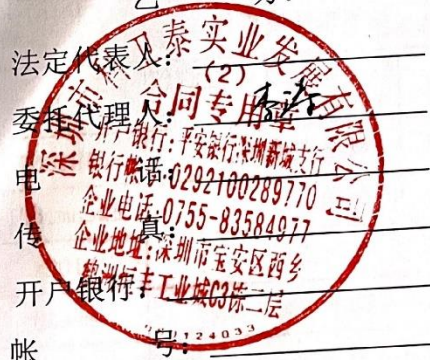 法定代表人:
委托代理人:
电 话:
传 真:
开户银行:
帐 号:
实业发展有限公司
(2)
合同专用章
开户银行:平安银行深圳新城支行
银行帐号:0292100289770
企业电话:0755-83584977
企业地址:深圳市宝安区西乡
鹤洲恒丰工业城C3栋二层